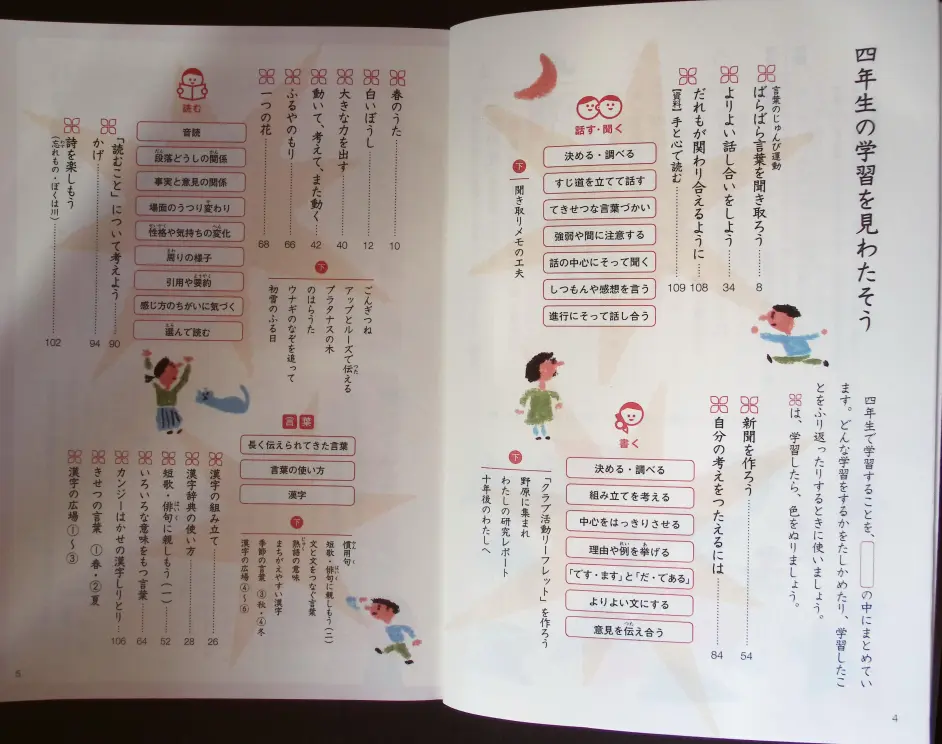 四年生の学習を見わたそう
四年生で学習することを、　　の中にまとめてい
ます。どんな学習をするかをたしかめたり、学習したこ
とをふり返ったりするときに使いましょう。
は、学習したら、色をぬりましょう。
話す・聞く
決める・調べる
すじ道を立てて話す
てきせつな言葉づかい
強弱や間に注意する
話の中心にそって聞く
しつもんや感想を言う
進行にそって話し合う
言葉のじゅんび運動
ばらばら言葉を聞き取ろう……8
よりよい話し合いをしよう……34
だれもが関わり合えるように……108
【資料】手と心で読む……109
下
聞き取りメモの工夫
書く
決める・調べる
組み立てを考える
中心をはっきりさせる
理由や例を挙げる
「です・ます」と「だ・である」
よりよい文にする
意見を伝え合う
新聞を作ろう……54
自分の考えをつたえるには……84
下
「クラブ活動リーフレット」を作ろう
野原に集まれ
わたしの研究レポート
十年後のわたしへ
4
読む
音読
段落どうしの関係
事実と意見の関係
場面のうつり変わり
性格や気持ちの変化
周りの様子
引用や要約
感じ方のちがいに気づく
選んで読む
春のうた……10
白いぼうし……12
大きな力を出す……40
動いて、考えて、また動く……42
ふるやのもり……66
一つの花……68
「読むこと」について考えよう……90
かげ……94
詩を楽しもう
（忘れもの・ぼくは川）……102
下
ごんぎつね
アップとルーズで伝える
プラタナスの木
のはらうた
ウナギのなぞを追って
初雪のふる日
言葉
長く伝えられてきた言葉
言葉の使い方
漢字
漢字の組み立て……26
漢字辞典の使い方……28
短歌・俳句に親しもう（一）……52
いろいろな意味をもつ言葉……64
カンジーはかせの漢字しりとり……106
きせつの言葉　①春・②夏
漢字の広場①～③
下
慣用句
短歌・俳句に親しもう（二）
文と文をつなぐ言葉
熟語の意味
まちがえやすい漢字
季節の言葉　③秋・④冬
漢字の広場④～⑥
5